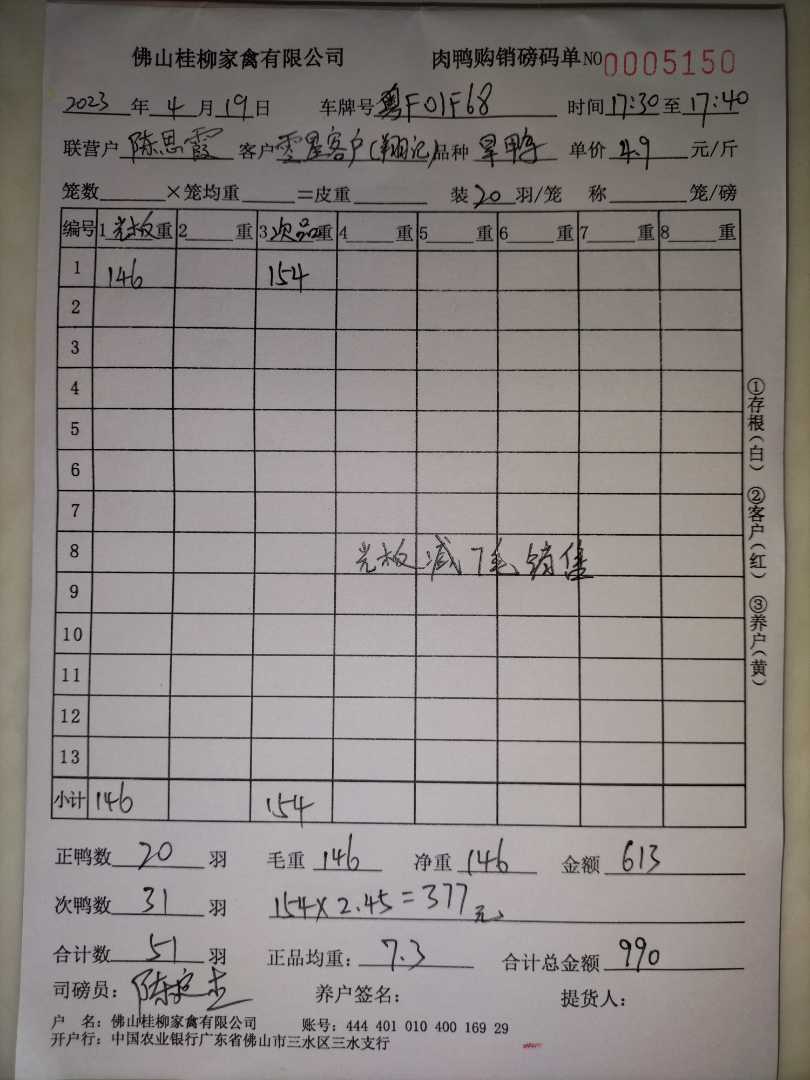 佛山桂柳家禽有限公司 肉鸭购销磅码单 NO 0005150
2023 年 4 月 19 日 车牌号 粤F01F68 时间 17:30 至 17:40
联营户 陈思霞 客户 零星客户(翔记) 品种 旱鸭 单价 4.9 元/斤
笼数 ×笼均重 =皮重 装 20 羽/笼 称 笼/磅
编号 1 光板 重 2 重 3 次品 重 4 重 5 重 6 重 7 重 8 重
1 146 154
2
3
4
5
6
7
8 光板减7毛销售
9
10
11
12
13
小计 146 154
正鸭数 20 羽 毛重 146 净重 146 金额 613
次鸭数 31 羽 154×2.45=377元
合计数 51 羽 正品均重: 7.3 合计总金额 990
司磅员: 陈 养户签名: 提货人:
户 名: 佛山桂柳家禽有限公司 账号: 444 401 010 400 169 29
开户行: 中国农业银行广东省佛山市三水区三水支行
①存根(白) ②客户(红) ③养户(黄)